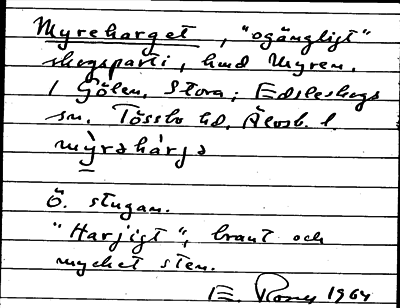 Myreharget, "ogängligt"
skogsparti, hmd Myren.
/ Gölen, Stora; Edsleskogs
sn. Tössbo hd. Älvsb. l.
mỳrahàrja
Ö. stugan.
"Harjigt", brant och
mycket sten.
E. 1964